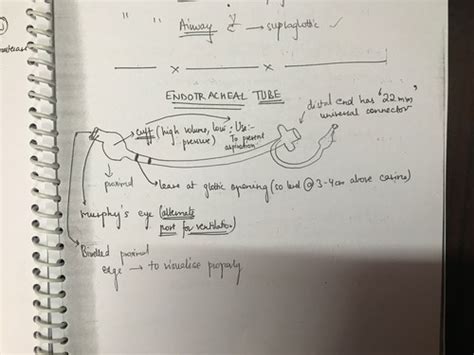 " "
Airway → supraglottic ✓
ENDOTRACHEAL TUBE
distal end has "22 mm"
universal connector
→ cuff (high volume, low pressure) : Use:- To prevent aspiration
proximal
→ leave at glottic opening (so lead @ 3-4cm above carina)
Murphy's eye (alternate
port for ventilation)
Bevelled proximal
edge → to visualise properly